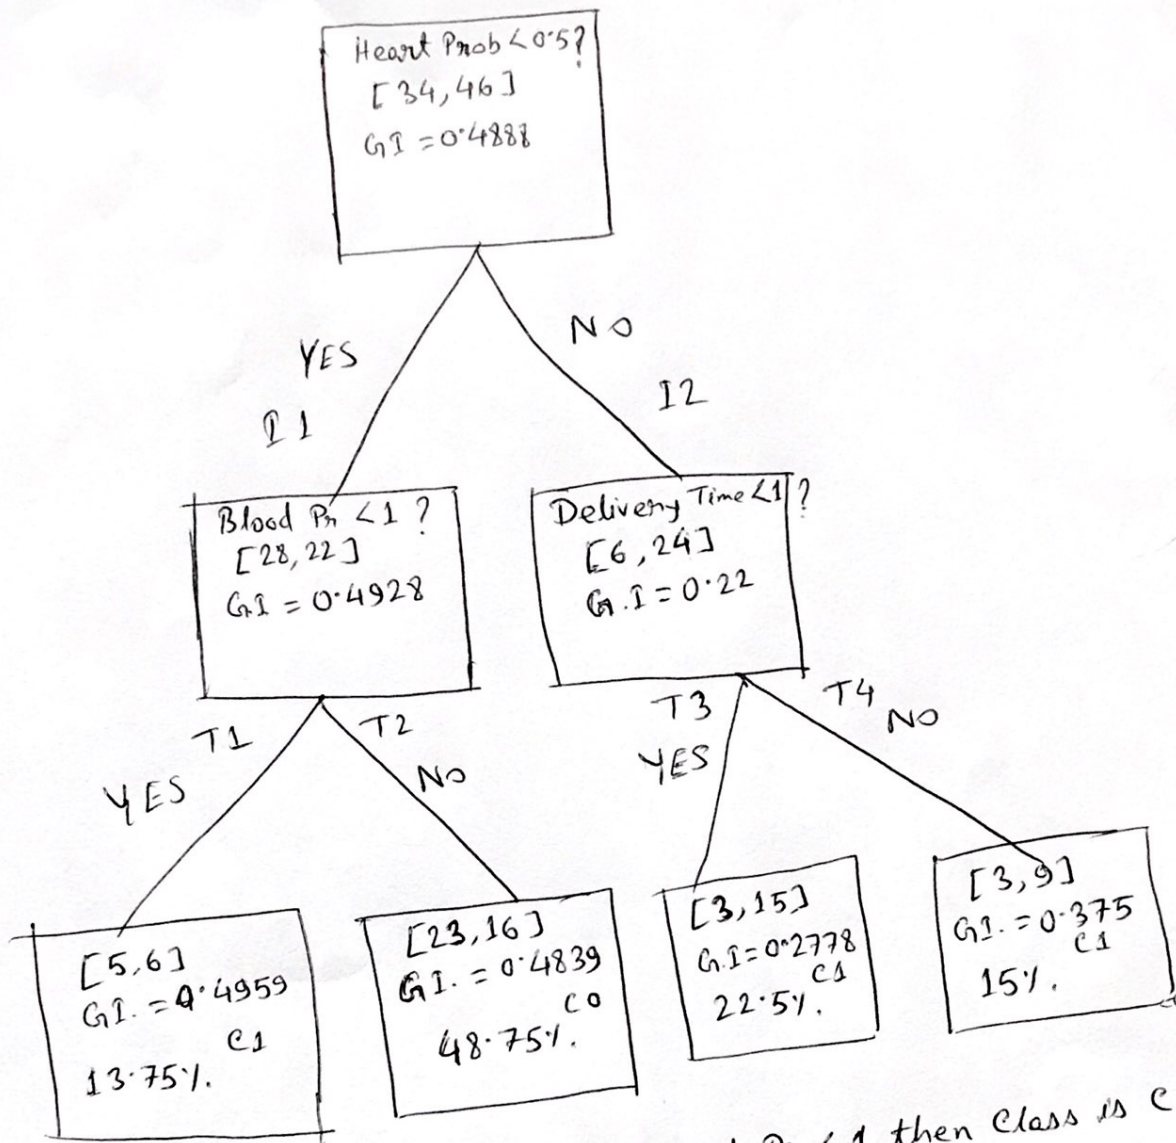 Heart Prob < 0.5?
[34,46]
GI = 0.4888
YES
NO
I1
I2
Blood Pr < 1 ?
[28,22]
G.I = 0.4928
Delivery Time < 1 ?
[6,24]
G.I = 0.22
T1
T2
YES
NO
T3
T4
YES
NO
[5,6]
GI. = 0.4959
C1
13.75%.
[23,16]
GI. = 0.4839
C0
48.75%.
[3,15]
G.I = 0.2778
C1
22.5%.
[3,9]
GI. = 0.375
C1
15%.
< 1 then Class is C